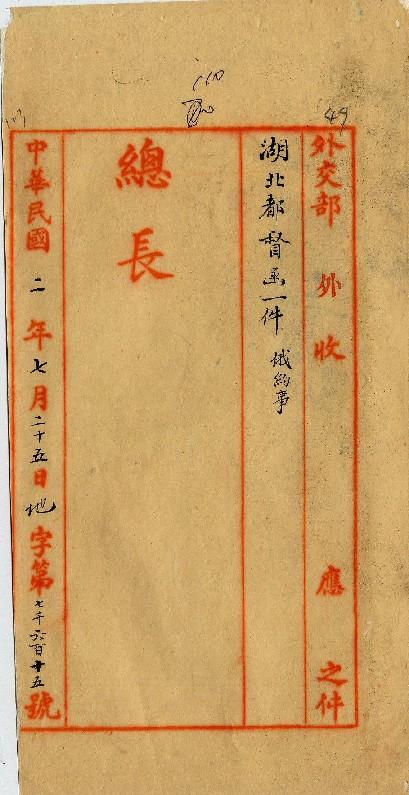 49
110
外交部 外收 應 之件
湖北都督函一件 俄約事
總長
中華民國二年七月二十五日地字第七千六百十五號